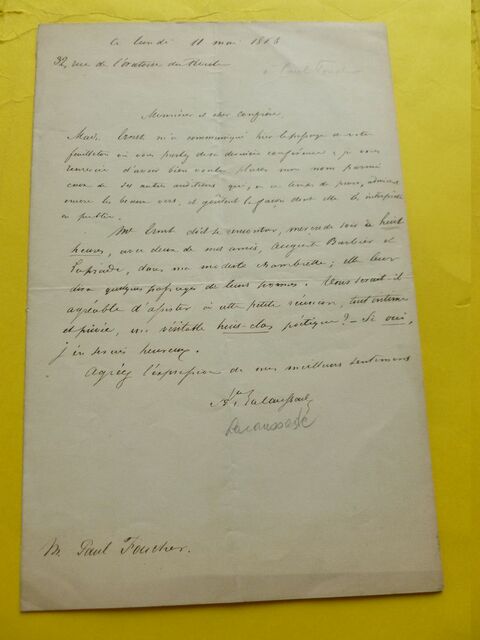 ce lundi 11 mai 1868
32, rue de l'oratoire du Roule
à Paul Foucher
Monsieur et cher confrère,
Mad. Ernst m'a communiqué hier le passage de votre
feuilleton où vous parlez de sa dernière conférence; je vous
remercie d'avoir bien voulu placer mon nom parmi
ceux de ses autres auditeurs qui, en ce temps de prose, admirent
encore les beaux vers, et goûtent la façon dont elle les interprète
en public.
Me Ernst doit se rencontrer, mercredi soir à huit
heures, avec deux de mes amis, Auguste Barbier et
Laprade, dans ma modeste chambrette; elle leur
dira quelques passages de leurs poèmes. Vous serait-il
agréable d'assister à cette petite réunion, tout intime
et privée, un véritable huis-clos poétique? - Si oui,
j'en serais heureux.
Agréez l'expression de mes meilleurs sentiments
Lacaussade
Lacaussade
M. Paul Foucher.